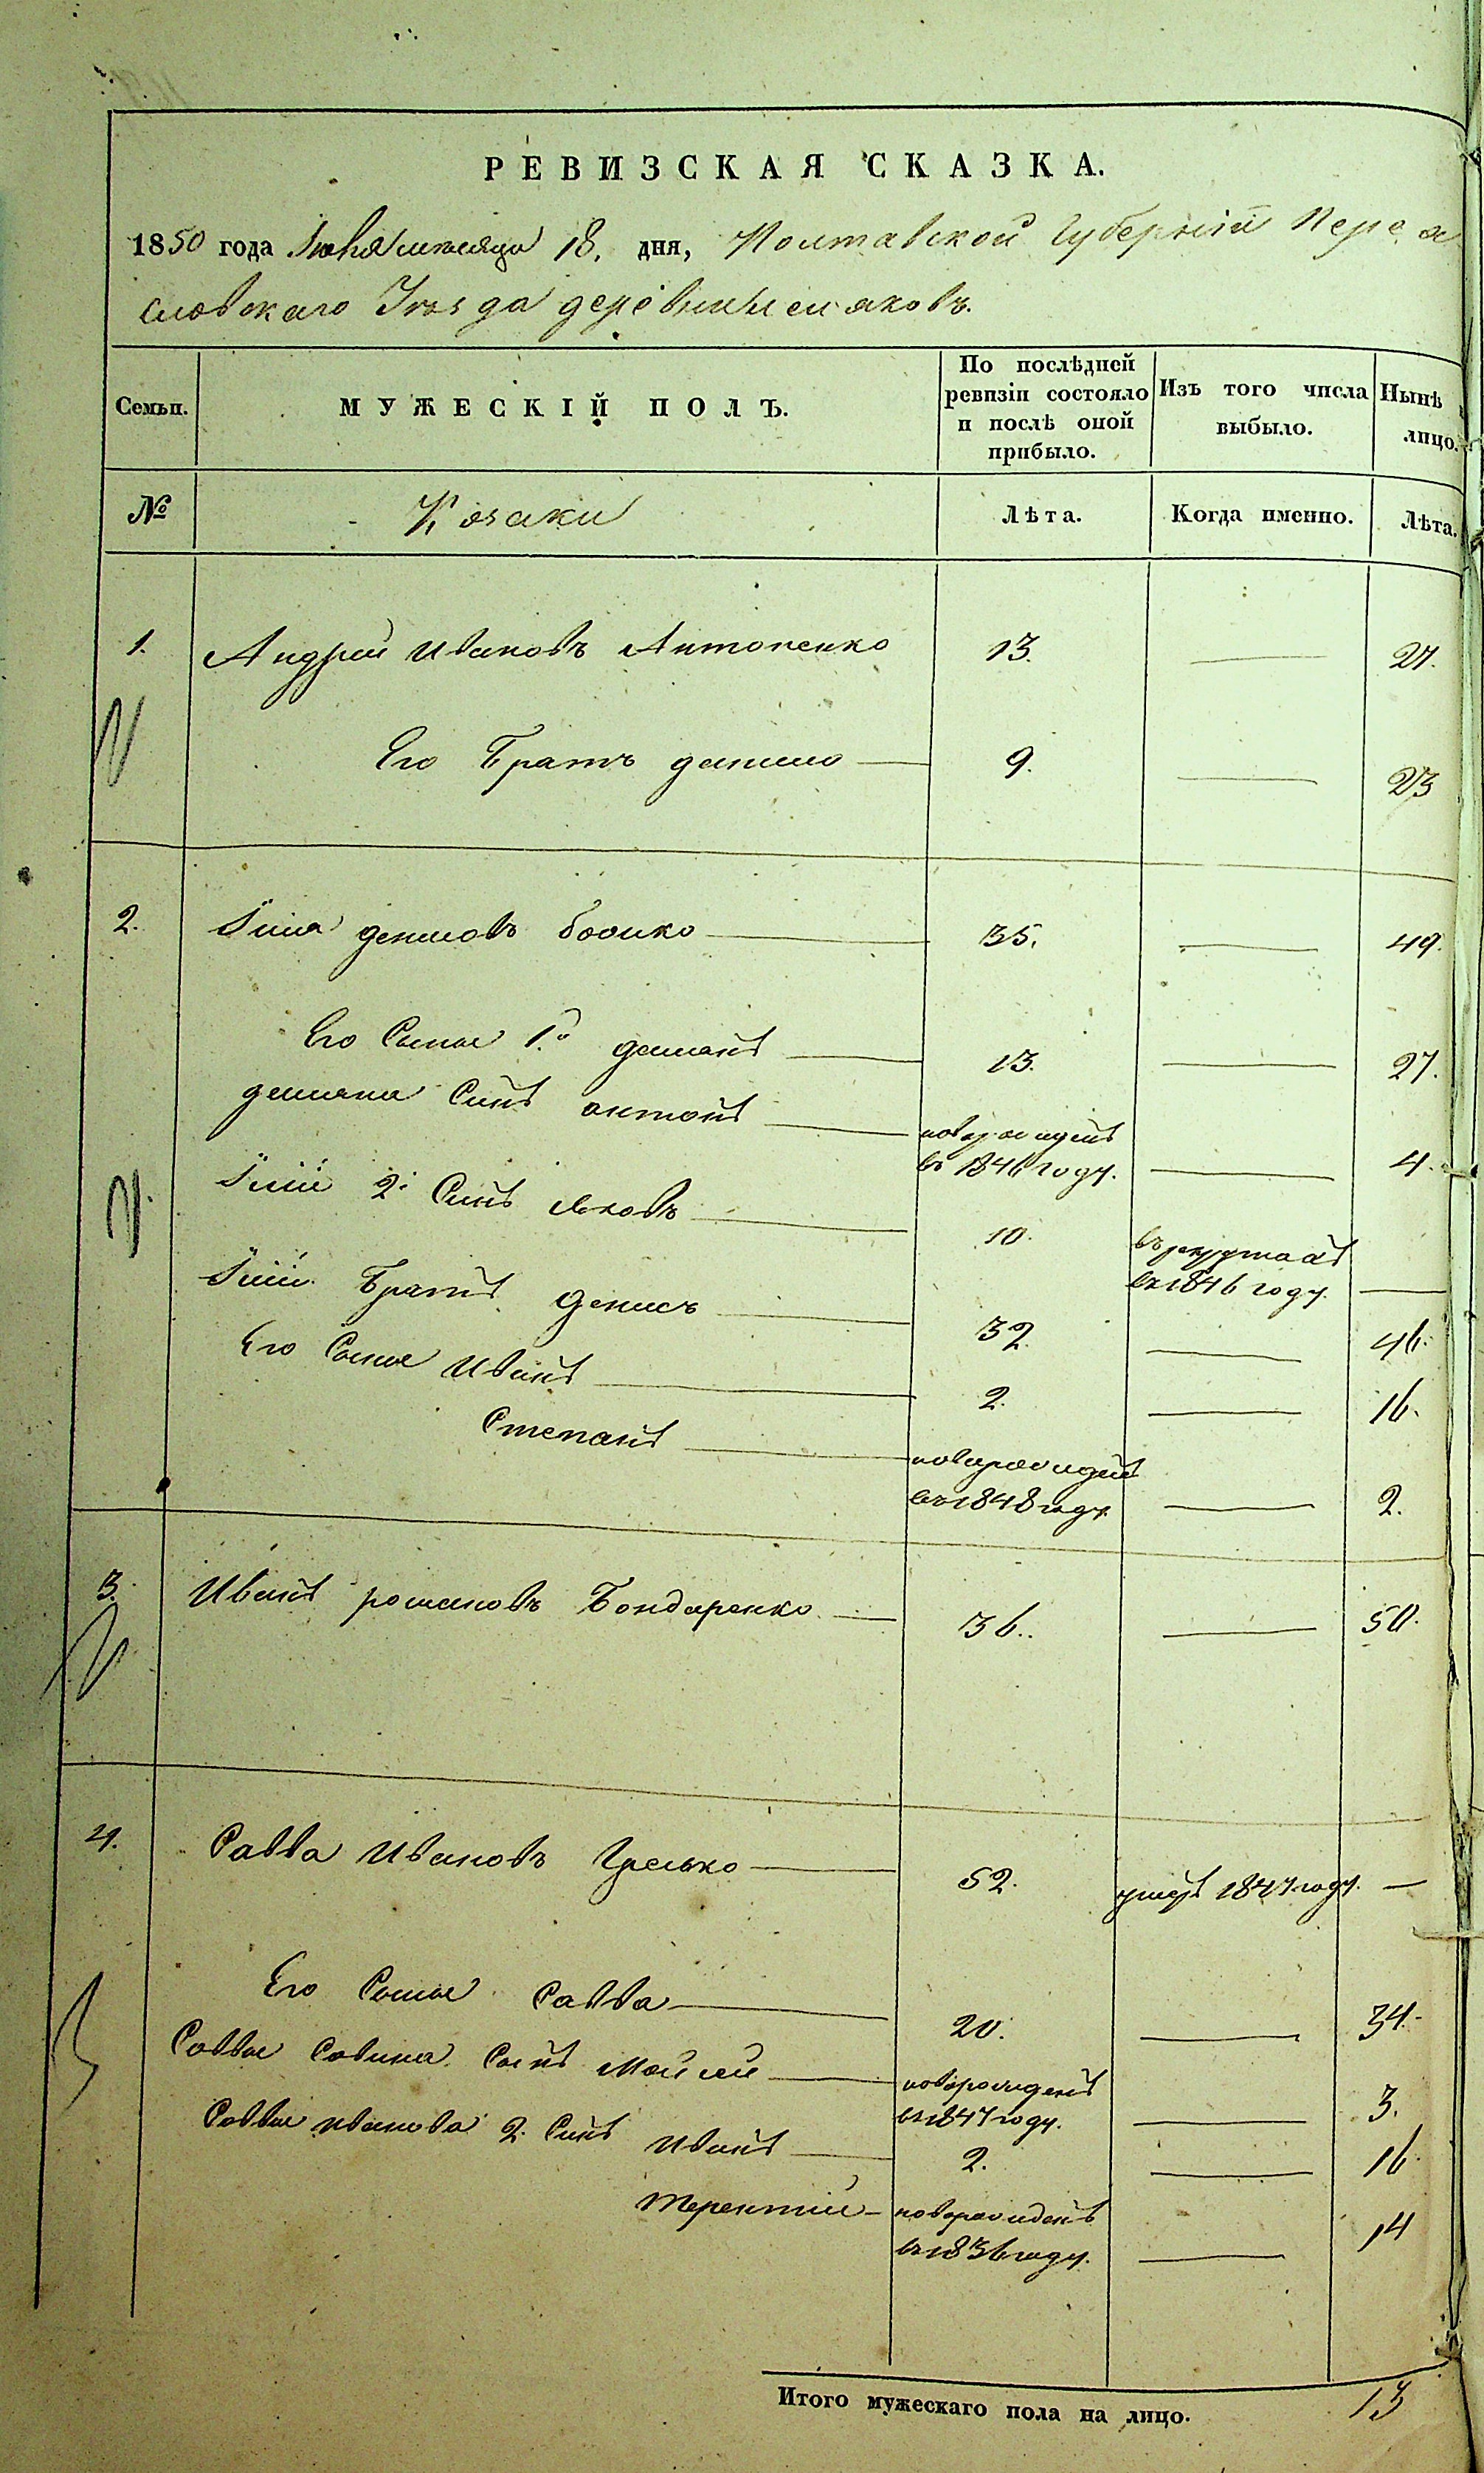 РЕВИЗСКАЯ СКАЗКА.
1850 года Июня месяца 18. дня, Полтавской Губерніи Перея
словскаго Уѣзда деревни
Семьи.
МУЖЕСКІЙ ПОЛЪ.
По послѣдней ревизіи состояло и послѣ оной прибыло.
Изъ того числа выбыло.
Нынѣ лицо.
№
Козаки
Лѣта.
Когда именно.
Лѣта.
1. Андрей Ивановъ Антоненко 13. — 27.
Его Братъ данило — 9. — 23
2. денисовъ бойко — 35. — 49.
Его Сынъ 1й демянъ — 13. — 27.
демяна Синъ антонъ — новорожденъ в 1846 году. — 4.
2й Синъ Яковъ — 10. въ рекрутахъ въ 1846 году. —
Братъ денисъ — 32. — 46.
Его Сынъ Иванъ — 2. — 16.
Степанъ — новорожденъ въ 1848 году — 2.
3. Иванъ романовъ Бондаренко — 36. — 50.
4. Савва Ивановъ — 52. умеръ 1847 году. —
Его Сынъ Савва — 20. — 34.
Саввы Савина Сынъ Мойсей — новорожденъ въ 1847 году. — 3.
Саввы иванова 2. Синъ Иванъ — 2. — 16.
терентий — новорожденъ въ 1836 году. — 14
Итого мужескаго пола на лицо. 13